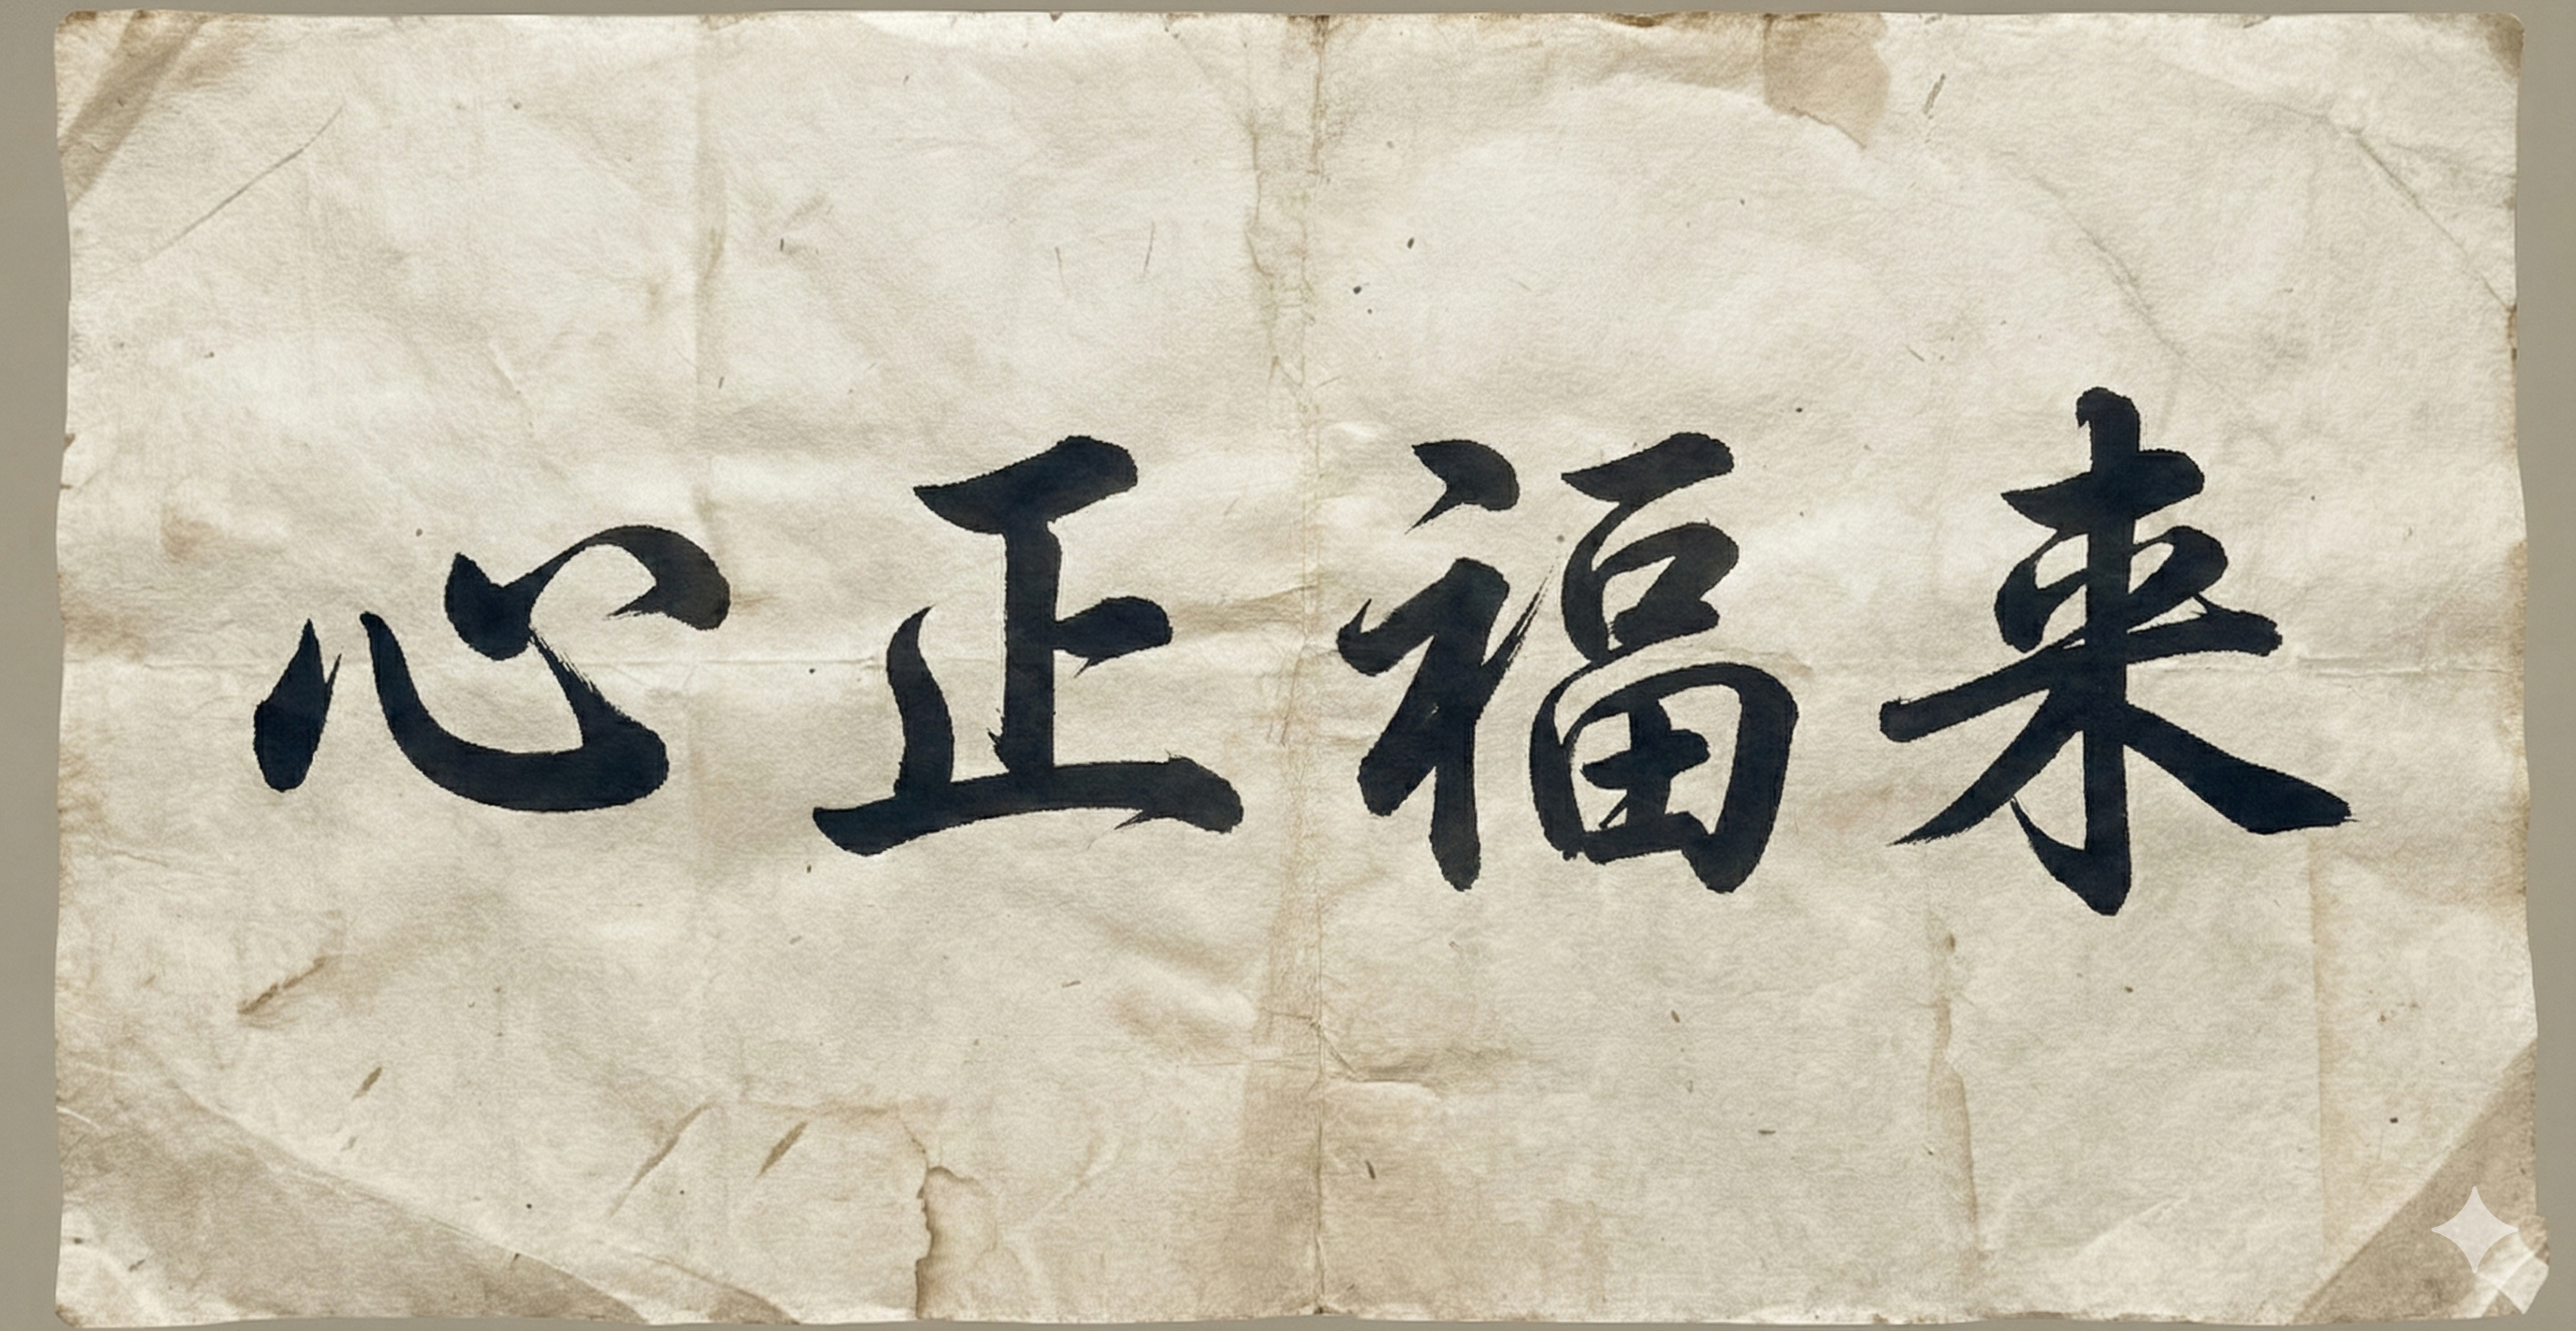 心正福来